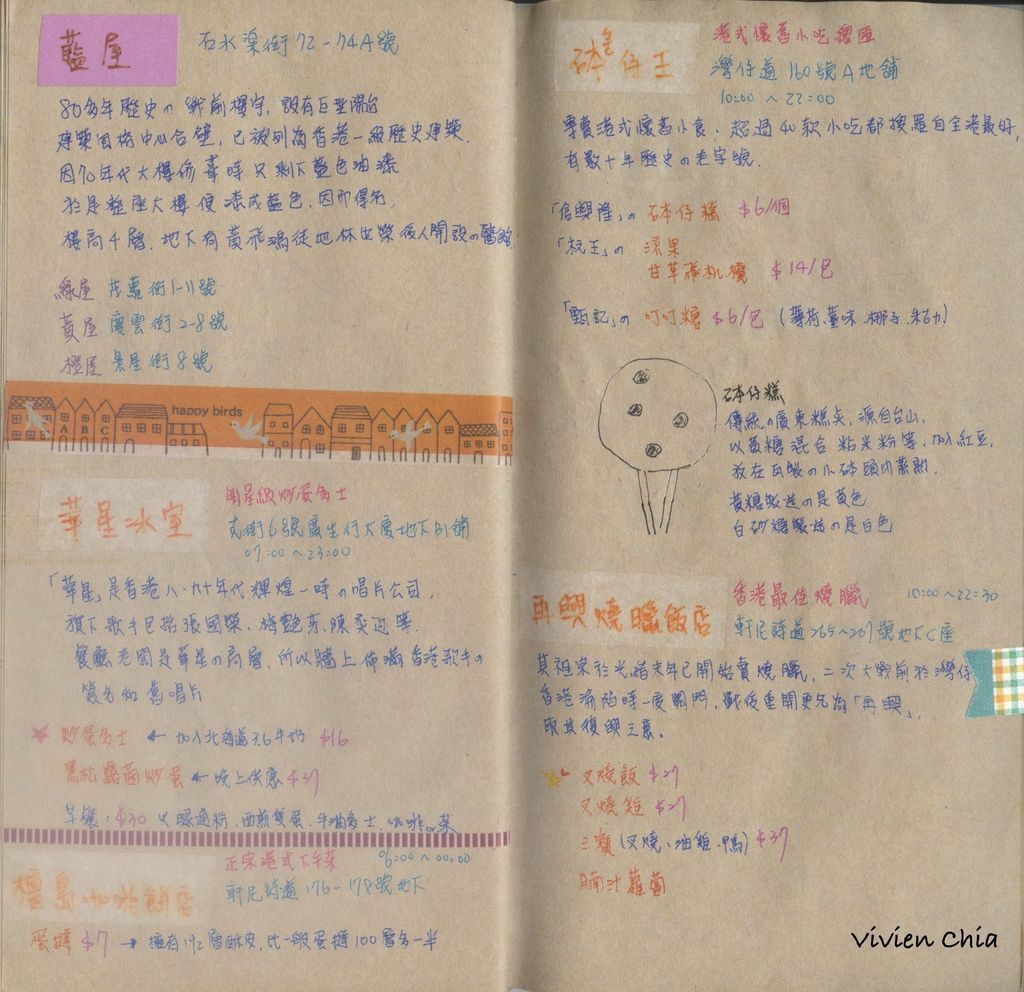 藍屋
石水渠街72-74A號
80多年歷史の戰前樓宇,設有巨型陽台
建築風格中仏合璧,已被列為香港一級歷史建築.
因70年代大樓係葺時只剩下藍色油漆
於是整座大樓便漆成藍色,因而得名,
樓高4層.地下有黃飛鴻徒弟林世榮後人開設の醫館
綠屋 茂蘿街1-11號
黃屋 慶雲街2-8號
橙屋 景星街8號
happy birds
A B C
華星冰室
明星級炒蛋多士
克街6號廣生行大廈地下B1舖
07:00～23:00
「華星」是香港八.九十年代輝煌一時の唱片公司,
旗下歌手包括張國榮、梅艷芳、陳奕迅等.
餐廳老闆是華星の高層,所以牆上佈滿香港歌手の
簽名和舊唱片
炒蛋多士 ← 加入北海道3.6牛奶 $16
黑松露菌炒蛋 ← 晚上供應 $37
早餐:$30 火腿通粉、西煎雙蛋、牛油多士、咖啡or茶
檀島咖啡餅店
正宗港式下午茶 06:00～00:00
軒尼詩道176-178號地下
蛋撻 $7 → 擁有192層酥皮,比一般蛋撻100層多一半
砵仔王
港式懷舊小吃總匯
灣仔道160號A地舖
10:00～22:00
專賣港式懷舊小食、超過40款小吃都搜羅自全港最好,
有數十年歷史の老字號.
「信興隆」の 砵仔糕 $6/個
「杬王」の 涼果
甘草飛机欖 $14/包
「甄記」の 叮叮糖 $6/包 (薄荷.薑味.椰子.朱古力)
砵仔糕
傳統の廣東糕点,源自台山,
以黃糖混合粘米粉等,加入紅豆,
放在瓦製の小砵頭內蒸熟.
黃糖製造の是黃色
白砂糖製造の是白色
再興燒臘飯店
香港最佳燒臘 10:00～22:30
軒尼詩道265～267號地下C座
其祖宗於光緒末年已開始賣燒臘,二次大戰前於灣仔
香港淪陷時一度關門,戰後重開更名為「再興」,
取其復興之意.
叉燒飯 $27
叉燒雞 $27
三寶(叉燒、油雞.鴨) $37
腩汁蘿蔔
Vivien Chia